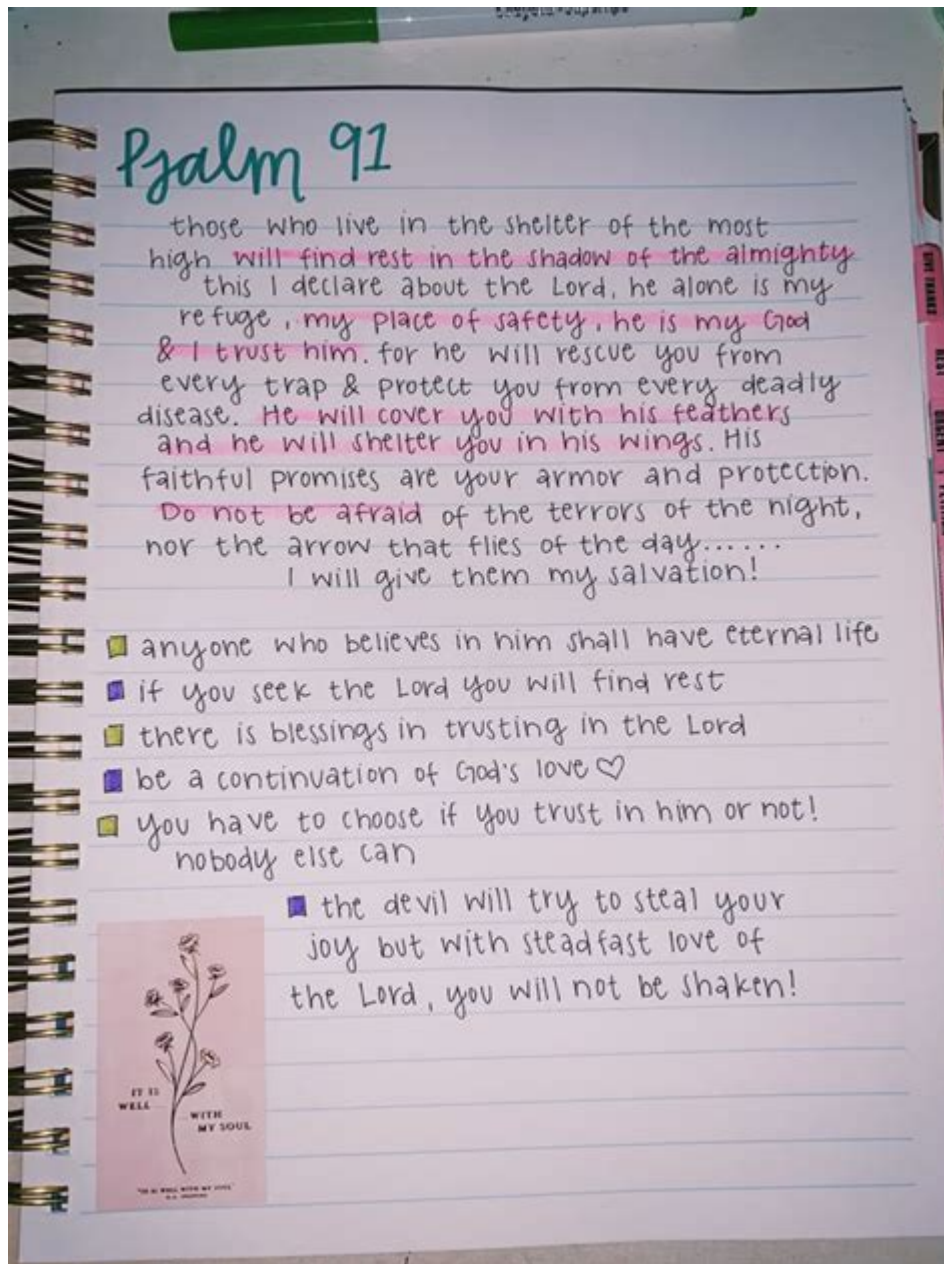 Psalm 91
those who live in the shelter of the most
high will find rest in the shadow of the almighty
this I declare about the Lord, he alone is my
refuge, my place of safety, he is my God
& I trust him. for he will rescue you from
every trap & protect you from every deadly
disease. He will cover you with his feathers
and he will shelter you in his wings. His
faithful promises are your armor and protection.
Do not be afraid of the terrors of the night,
nor the arrow that flies of the day......
I will give them my salvation!
anyone who believes in him shall have eternal life
if you seek the Lord you will find rest
there is blessings in trusting in the Lord
be a continuation of God's love ♡
you have to choose if you trust in him or not!
nobody else can
the devil will try to steal your
joy but with steadfast love of
the Lord, you will not be shaken!
IT IS
WELL
WITH
MY SOUL
"IT IS WELL WITH MY SOUL"
GIVE THANKS